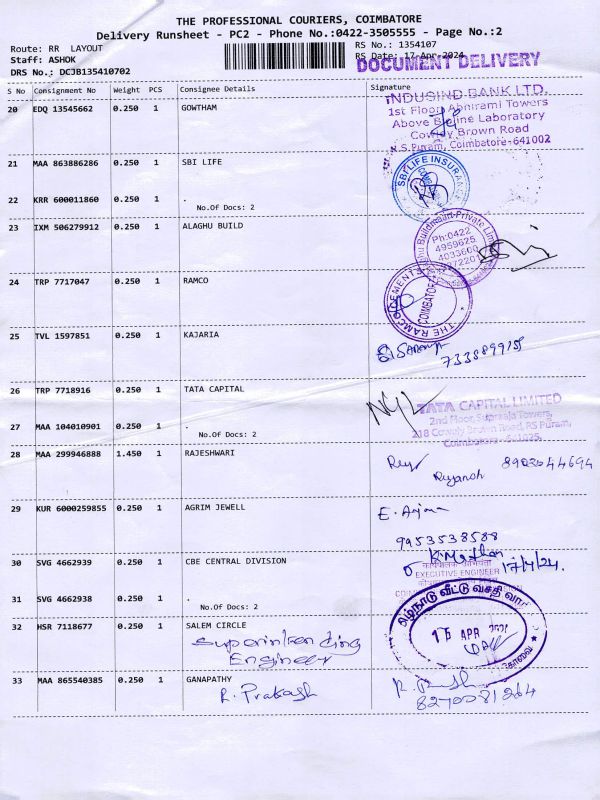 THE PROFESSIONAL COURIERS, COIMBATORE
Delivery Runsheet - PC2 - Phone No.:0422-3505555 - Page No.:2
Route: RR LAYOUT
RS No.: 1354107
Staff: ASHOK
RS Date: 17-Apr-2024
DRS No.: DCJB135410702
DOCUMENT DELIVERY
S No Consignment No Weight PCS Consignee Details Signature
20 EDQ 13545662 0.250 1 GOWTHAM
INDUSIND BANK LTD.
1st Floor, Abhirami Towers
Above Laboratory
Cowley Brown Road
R.S.Puram, Coimbatore-641002
21 MAA 863886286 0.250 1 SBI LIFE
SBI LIFE INSURANCE
22 KRR 600011860 0.250 1 .
No.Of Docs: 2
23 IXM 506279912 0.250 1 ALAGHU BUILD
Ph:0422
4959625
4033600
24 TRP 7717047 0.250 1 RAMCO
THE RAMCO CEMENTS
COIMBATORE
25 TVL 1597851 0.250 1 KAJARIA
26 TRP 7718916 0.250 1 TATA CAPITAL
TATA CAPITAL LIMITED
2nd Floor, Supraja Towers,
218 Cowly Brown Road, RS Puram,
Coimbatore
27 MAA 104010901 0.250 1 .
No.Of Docs: 2
28 MAA 299946888 1.450 1 RAJESHWARI
8902644694
29 KUR 6000259855 0.250 1 AGRIM JEWELL
9953538588
30 SVG 4662939 0.250 1 CBE CENTRAL DIVISION
17/4/24.
EXECUTIVE ENGINEER
31 SVG 4662938 0.250 1 .
No.Of Docs: 2
32 HSR 7118677 0.250 1 SALEM CIRCLE
Superintending
Engineer
தமிழ்நாடு வீட்டு வசதி
APR
கோவை
33 MAA 865540385 0.250 1 GANAPATHY
R. Prakash
8270081264